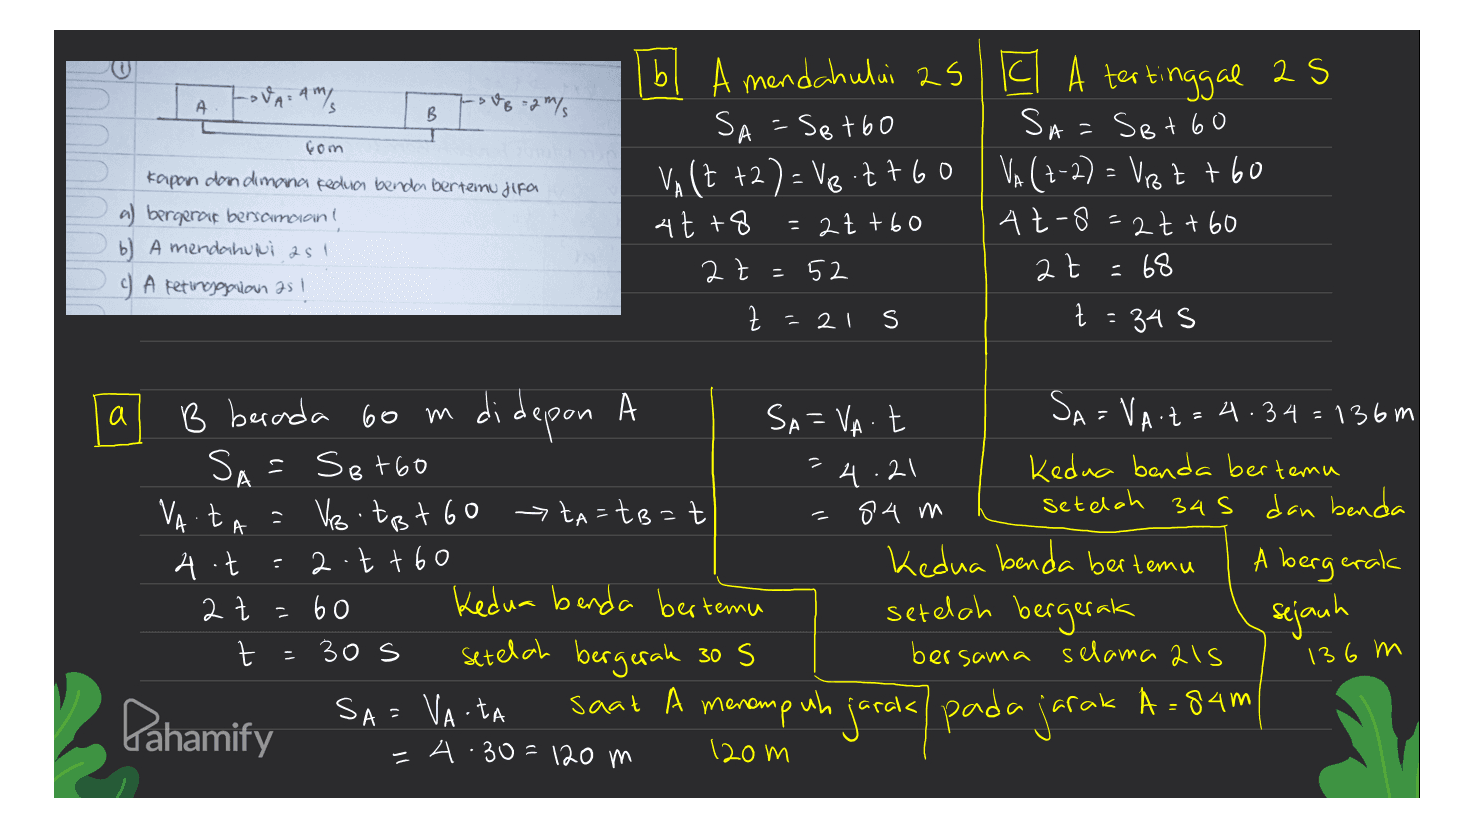 1
A → vA = 4 m/s
B → vB = 2 m/s
60m
kapan dan dimana kedua benda bertemu jika
a) bergerak bersamaan!
b) A mendahului 2s!
c) A ketinggalan 2s!
b A mendahului 2 S
SA = SB + 60
VA (t + 2) = VB . t + 60
4t + 8 = 2t + 60
2t = 52
t = 21 S
SA = VA . t
= 4 . 21
= 84 m
Kedua benda bertemu
setelah bergerak
bersama selama 21s
pada jarak A = 84m
C A tertinggal 2 S
SA = SB + 60
VA (t-2) = VB t + 60
4t - 8 = 2t + 60
2t = 68
t = 34 S
SA = VA . t = 4 . 34 = 136 m
Kedua benda bertemu
setelah 34 S dan benda
A bergerak
sejauh
136 m
a B berada 60 m di depan A
SA = SB + 60
VA . tA = VB . tB + 60 → tA = tB = t
4 . t = 2 . t + 60
2t = 60
t = 30 s
SA = VA . tA
= 4 . 30 = 120 m
Kedua benda bertemu
setelah bergerak 30 S
saat A menempuh jarak
120 m
Pahamify